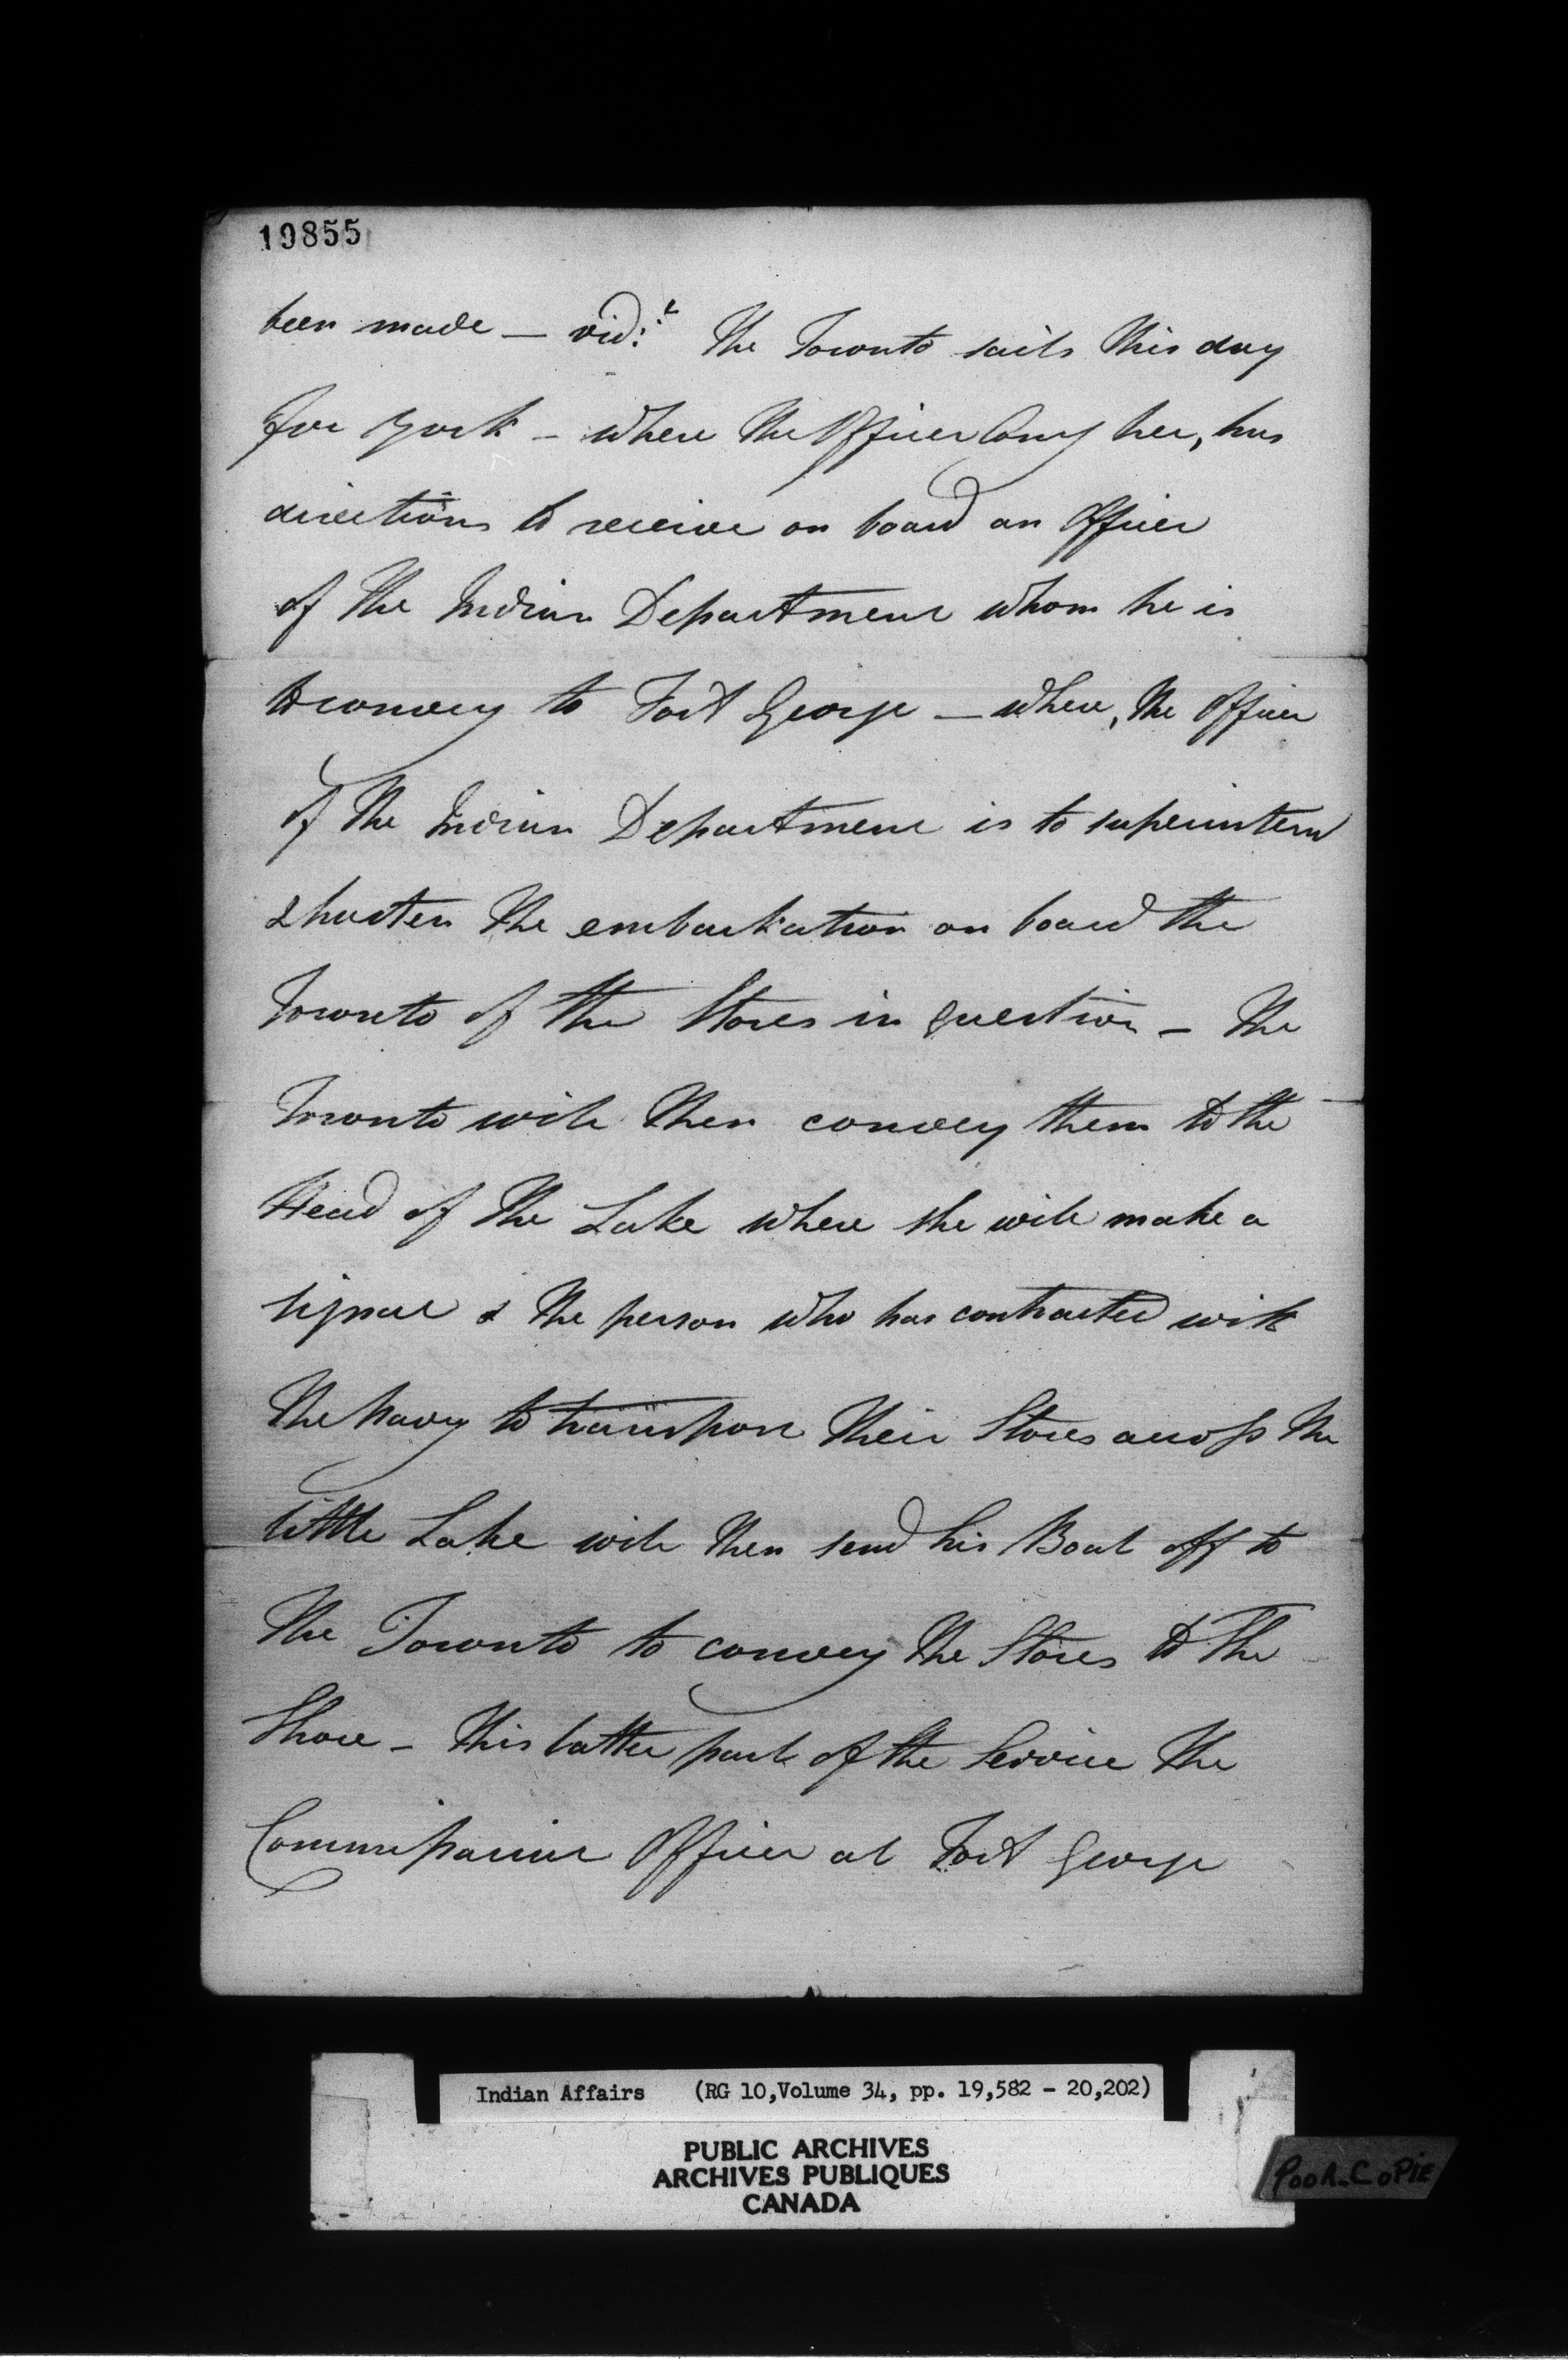 19855
been made — vid:t The Toronto sails this day
for York – where the Officer Comg her, has
directions to receive on board an Officer
of the Indian Department whom he is
to convey to Fort George — where, the Officer
of the Indian Department is to superintend
& hasten the embarkation on board the
Toronto of the Stores in question – The
Toronto will then convey them to the
Head of the Lake where she will make a
signal & the person who has contracted with
the Navy to transport their Stores across the
little Lake will then send his Boat off to
the Toronto to convey the Stores to the
Shore – this latter part of the Service the
Commissariat Officer at Fort George
Indian Affairs (RG 10, Volume 34, pp. 19,582 - 20,202)
PUBLIC ARCHIVES
ARCHIVES PUBLIQUES
CANADA
POOR COPIE